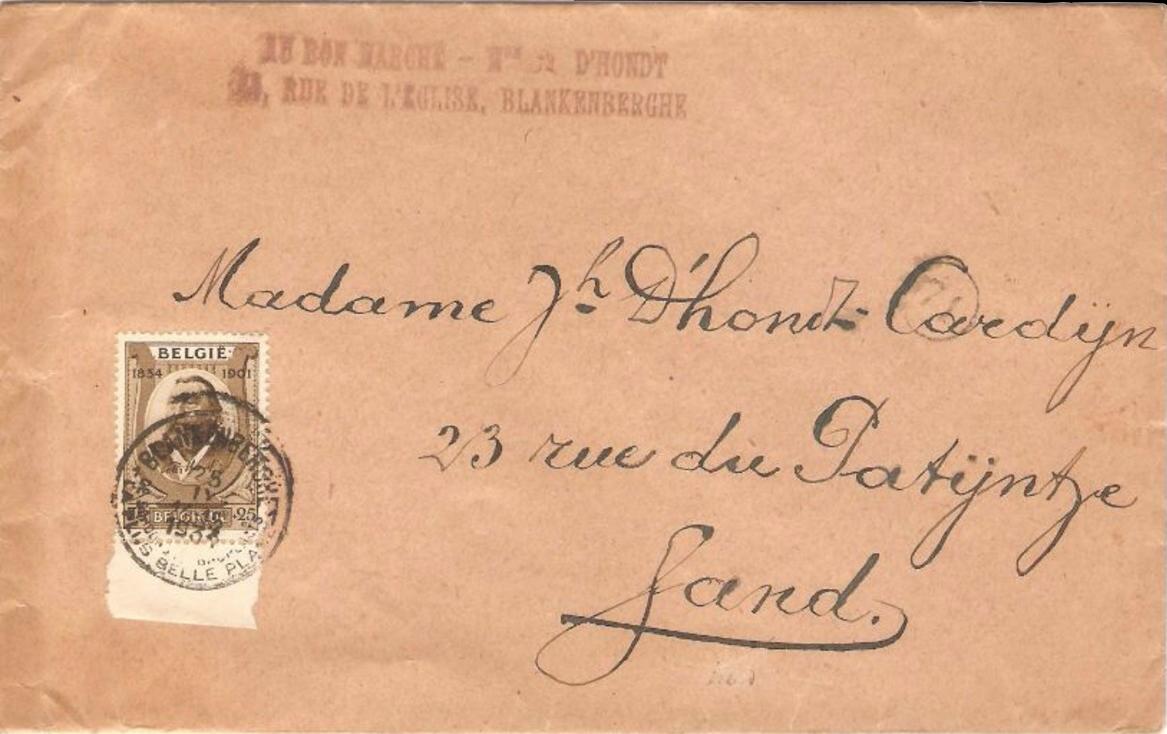 AU BON MARCHÉ - D'HONDT
RUE DE L'EGLISE, BLANKENBERGHE
Madame Jh D'hondt-Cardijn
23 rue du Patijntze
Gand.
BELGIË
1834 1901
BELGIQUE 25
BLANKENBERGHE
25
IX
BELLE PLAGE